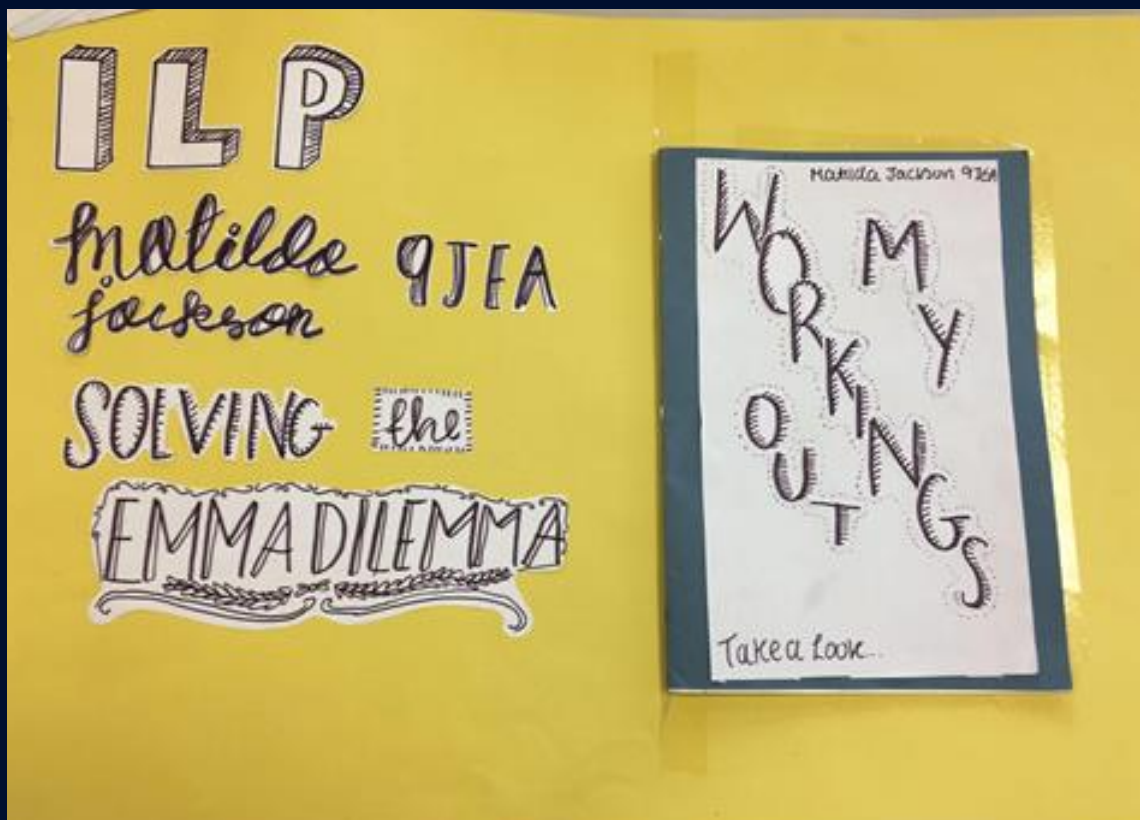 ILP
Matilda
Jackson
9JEA
SOLVING the
EMMA DILEMMA
Matilda Jackson 9JEA
MY
WORKINGS
OUT
Take a look...